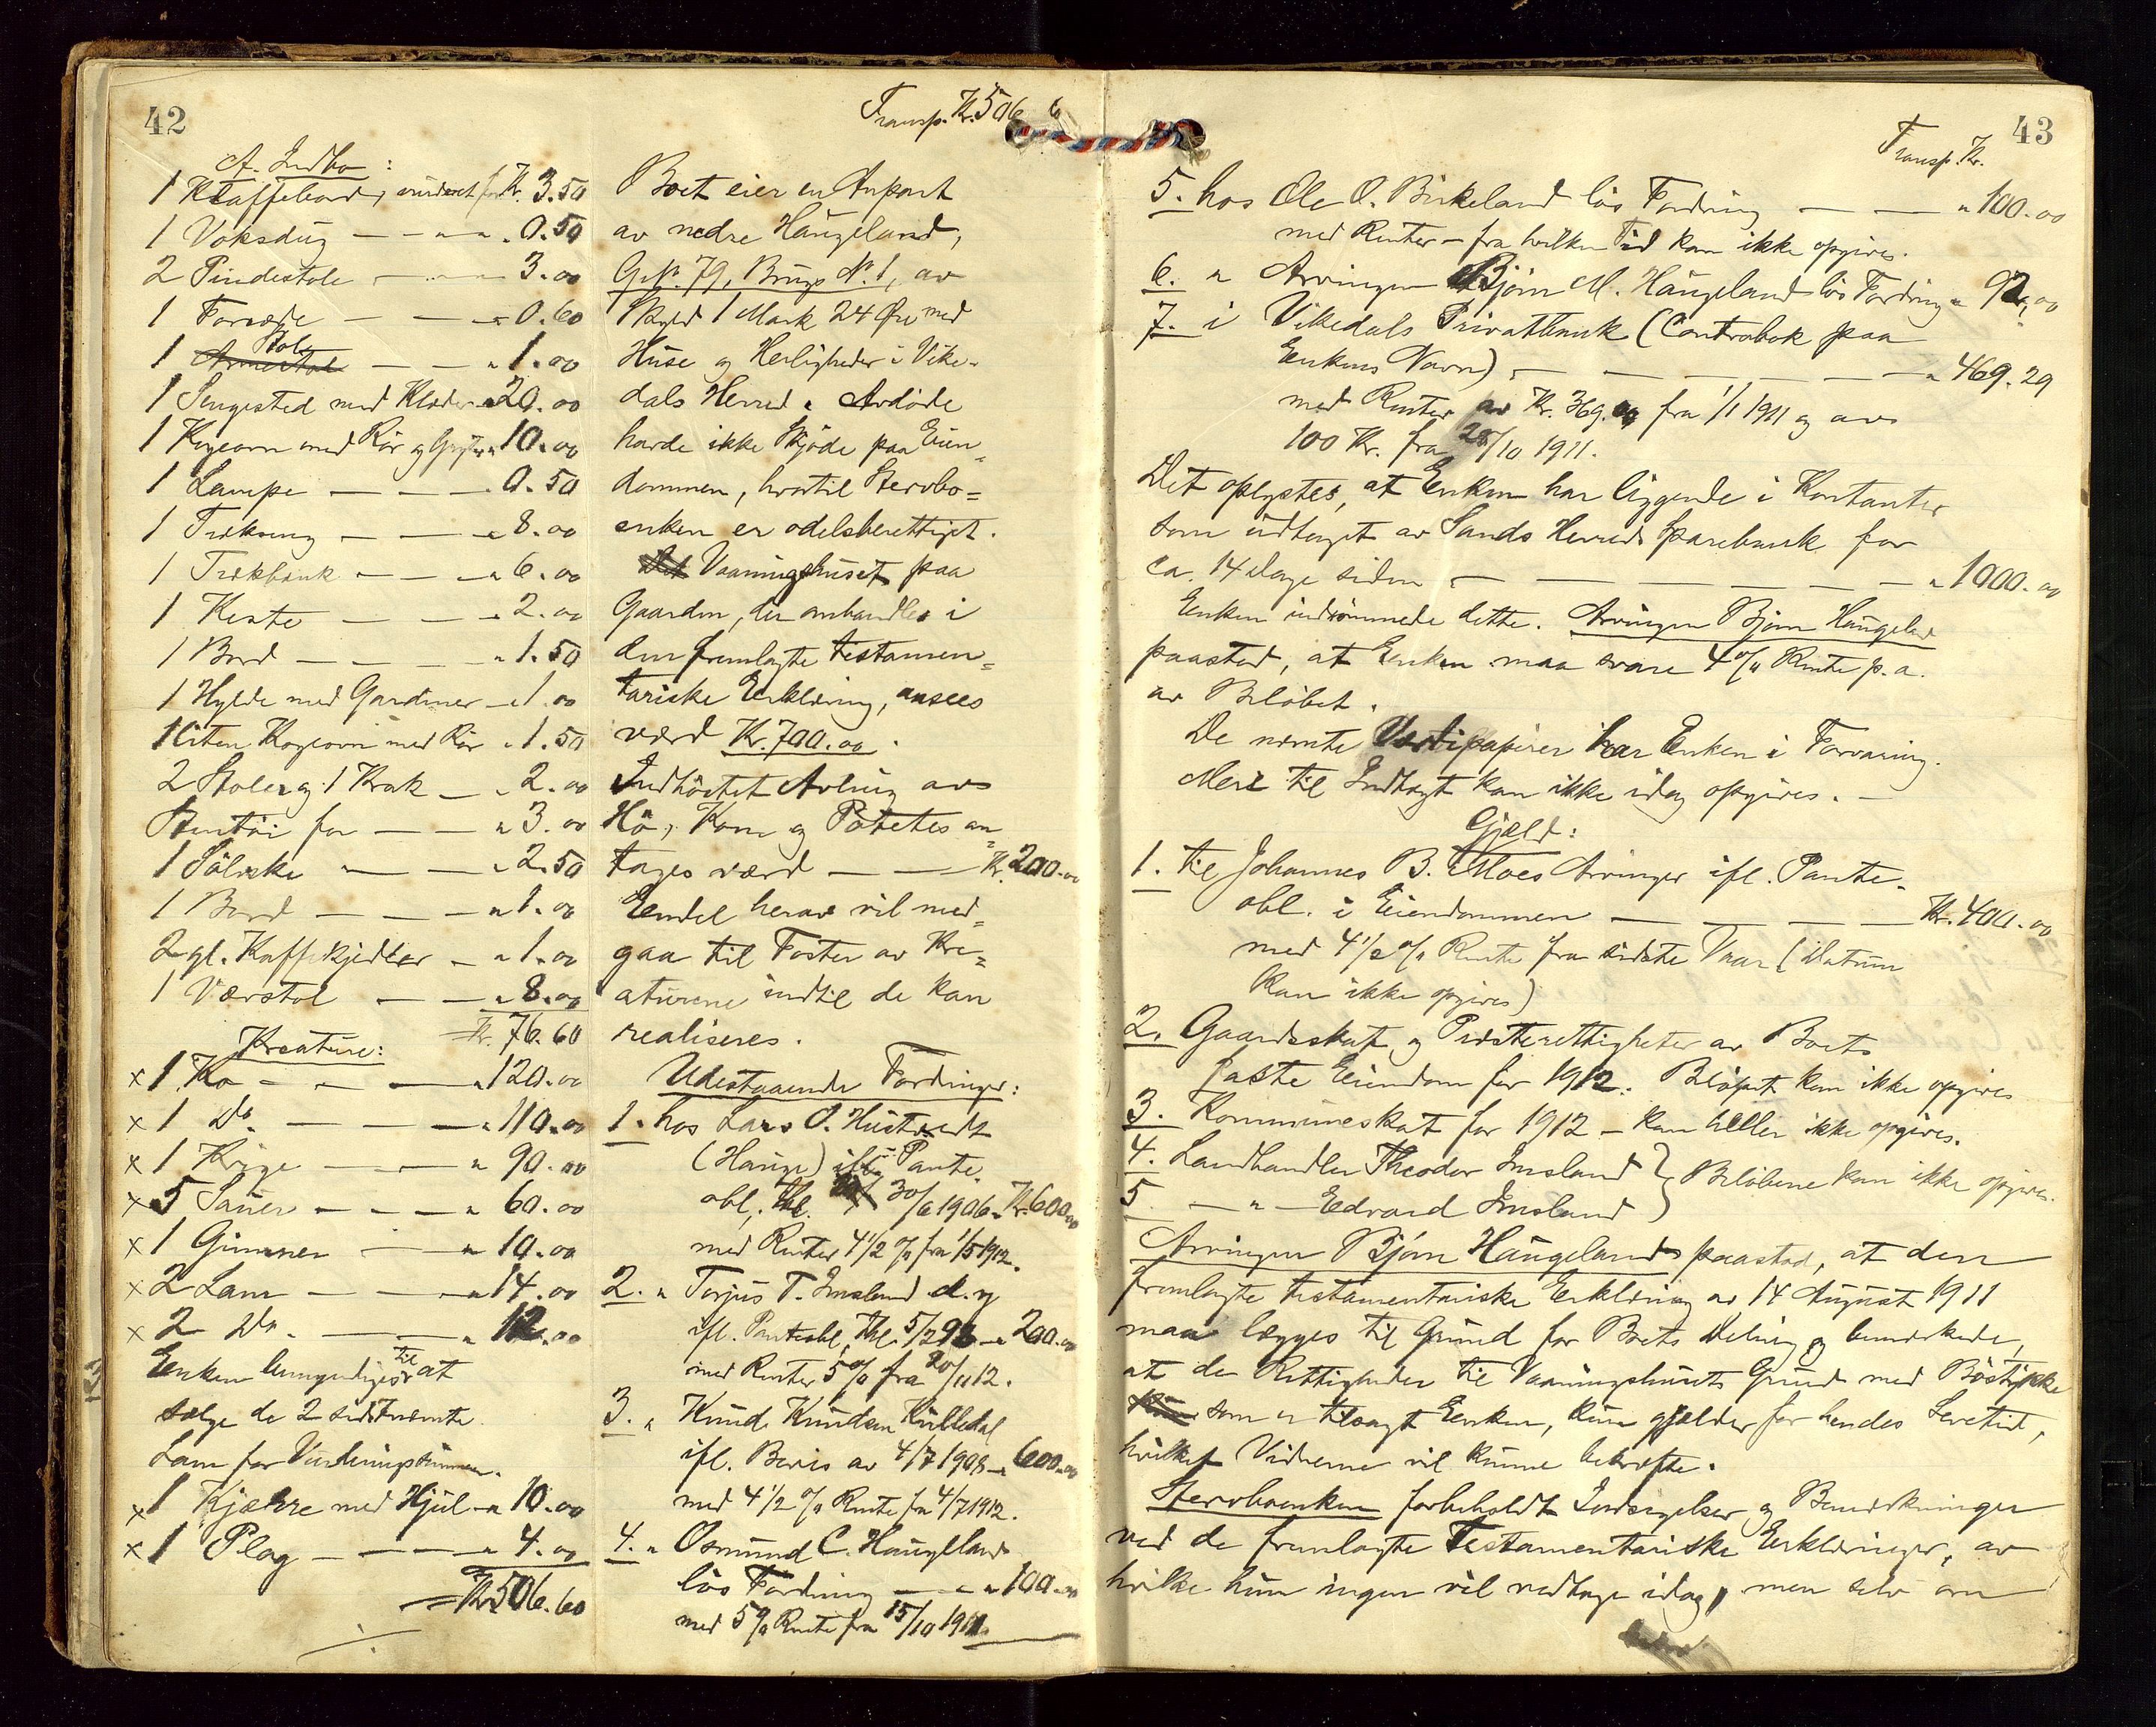 42
A. Indbo:
1 Klaffebord, vurderet for Kr. 3.50
1 Voksdug — — " 0.50
2 Pindestole — " 3.00
1 — — " 0.60
1 Stole — — " 1.00
1 Sengested med Klæder " 20.00
1 Kogeovn med Rör og Gryter " 10.00
1 Lampe — — — " 0.50
1 — — — " 8.00
1 — — — " 6.00
1 Kiste — — — " 2.00
1 Bord — — — " 1.50
1 Hylde med Gardiner — " 1.00
1 liten Kogeovn med Rör " 1.50
2 Stoler og 1 Krak — " 2.00
Stentöi for — — " 3.00
1 — — " 2.50
1 Bord — — — " 1.00
2 gl. Kaffekjedler — " 1.00
1 Værstol — — " 8.00
Kr. 76.60
Kreature:
x 1 Ko — — — " 120.00
x 1 Do. — — — " 110.00
x 1 Kvige — — " 90.00
x 5 Sauer — — — " 60.00
x 1 Gimmer — " 10.00
x 2 Lam — — — " 14.00
x 2 Do. — — " 12.00
Enken bemyndiges til at
sælge de 2 sidstnævnte
Lam for Vurderingssummen.
x 1 Kjærre med Hjul " 10.00
x 1 Plog — — — " 4.00
= Kr. 506.60
Transp. Kr. 506 6
Boet eier en Anpart
av nedre Haugeland,
G.No. 79, Brugs No. 1, av
Skyld 1 Mark 24 Öre med
Huse og Herligheder i Vike-
dals Herred. Avdöde
havde ikke Skjöde paa Eien-
dommen, hvortil Stervbo=
enken er odelsberettiget.
Det Vaaningshuset paa
Gaarden, der omhandles i
den fremlagte testamen=
tariske Erklæring, ansees
værd Kr. 700.00.
Indhöstet Avling av
Hö, Korn og Potetes an=
tages værd — — Kr. 200.00
Eendel herav vil med=
gaa til Foster av Kre=
aturene indtil de kan
realiseres.
Udestaaende Fordringer:
1. hos Lars O. Hustvedt
(Hauge) ifl. Pante-
obl. thl. 30/6 1906 Kr. 600.00
med Renter 4 1/2 % fra 1/5 1912.
2. " Torjus T. Imsland d.y
ifl. Panteobl. thl. 5/2 98 " 200.00
med Renter 5 % fra 20/11 12.
3. " Knud Knudsen Kulledal
ifl. Bevis av 4/7 1908 " 600.00
med 4 1/2 % Rente fra 4/7 1912.
4. " Osmund C. Haugeland
lös Fordring — — " 100.00
med 5 % Rente fra 15/10 1911
43
Transp. Kr.
5. hos Ole O. Birkeland lös Fordring — — " 100.00
med Renter – fra hvilken Tid kan ikke opgives.
6. " Arvingen Björn M. Haugeland lös Fordring " 92,00
7. i Vikedals Privatbank (Contrabok paa
Enkens Navn) — — — — — " 469.29
med Renter av Kr. 369. fra 1/1 1911 og av
100 Kr. fra 28/10 1911.
Det oplystes, at Enken har liggende i Kontanter
som udtaget av Sands Herreds Sparebank for
ca. 14 Dage siden — — — — — " 1000.00
Enken indrömmede dette. Arvingen Björn Haugeland
paastod, at Enken maa svare 4 % Rente p.a.
av Belöbet.
De nævnte Værdipapirer har Enken i Forvaring.
Mere til Indtægt kan ikke idag opgives. —
Gjæld:
1. til Johannes B. Moes Arvinger ifl. Pante-
obl. i Eiendommen — — — — Kr. 400.00
med 4 1/2 % Rente fra sidste Vaar (Datum
kan ikke opgives)
2. Gaardsskat og Presterettigheter av Boets
faste Eiendom for 1912. Belöpet kan ikke opgives
3. Kommuneskat for 1912 – kan heller ikke opgives.
4. Landhandler Theodor Imsland } Belöbene kan ikke opgives.
5. — " — Edvard Imsland }
Arvingen Björn Haugeland paastod, at den
fremlagte testamentariske Erklæring av 14 August 1911
maa lægges til Grund for Boets Deling og bemerkede,
at de Rettigheder til Vaaningshusets Grund med
som er tilsagt Enken, kun gjælder for hendes Levetid,
hvilket Vidnerne vil kunne bekræfte.
Stervboenken forbeholdt Indsigelser og Bemerkninger
ved de fremlagte Testamentariske Erklæringer, av
hvilke hun ingen vil vedtage idag, men selv om